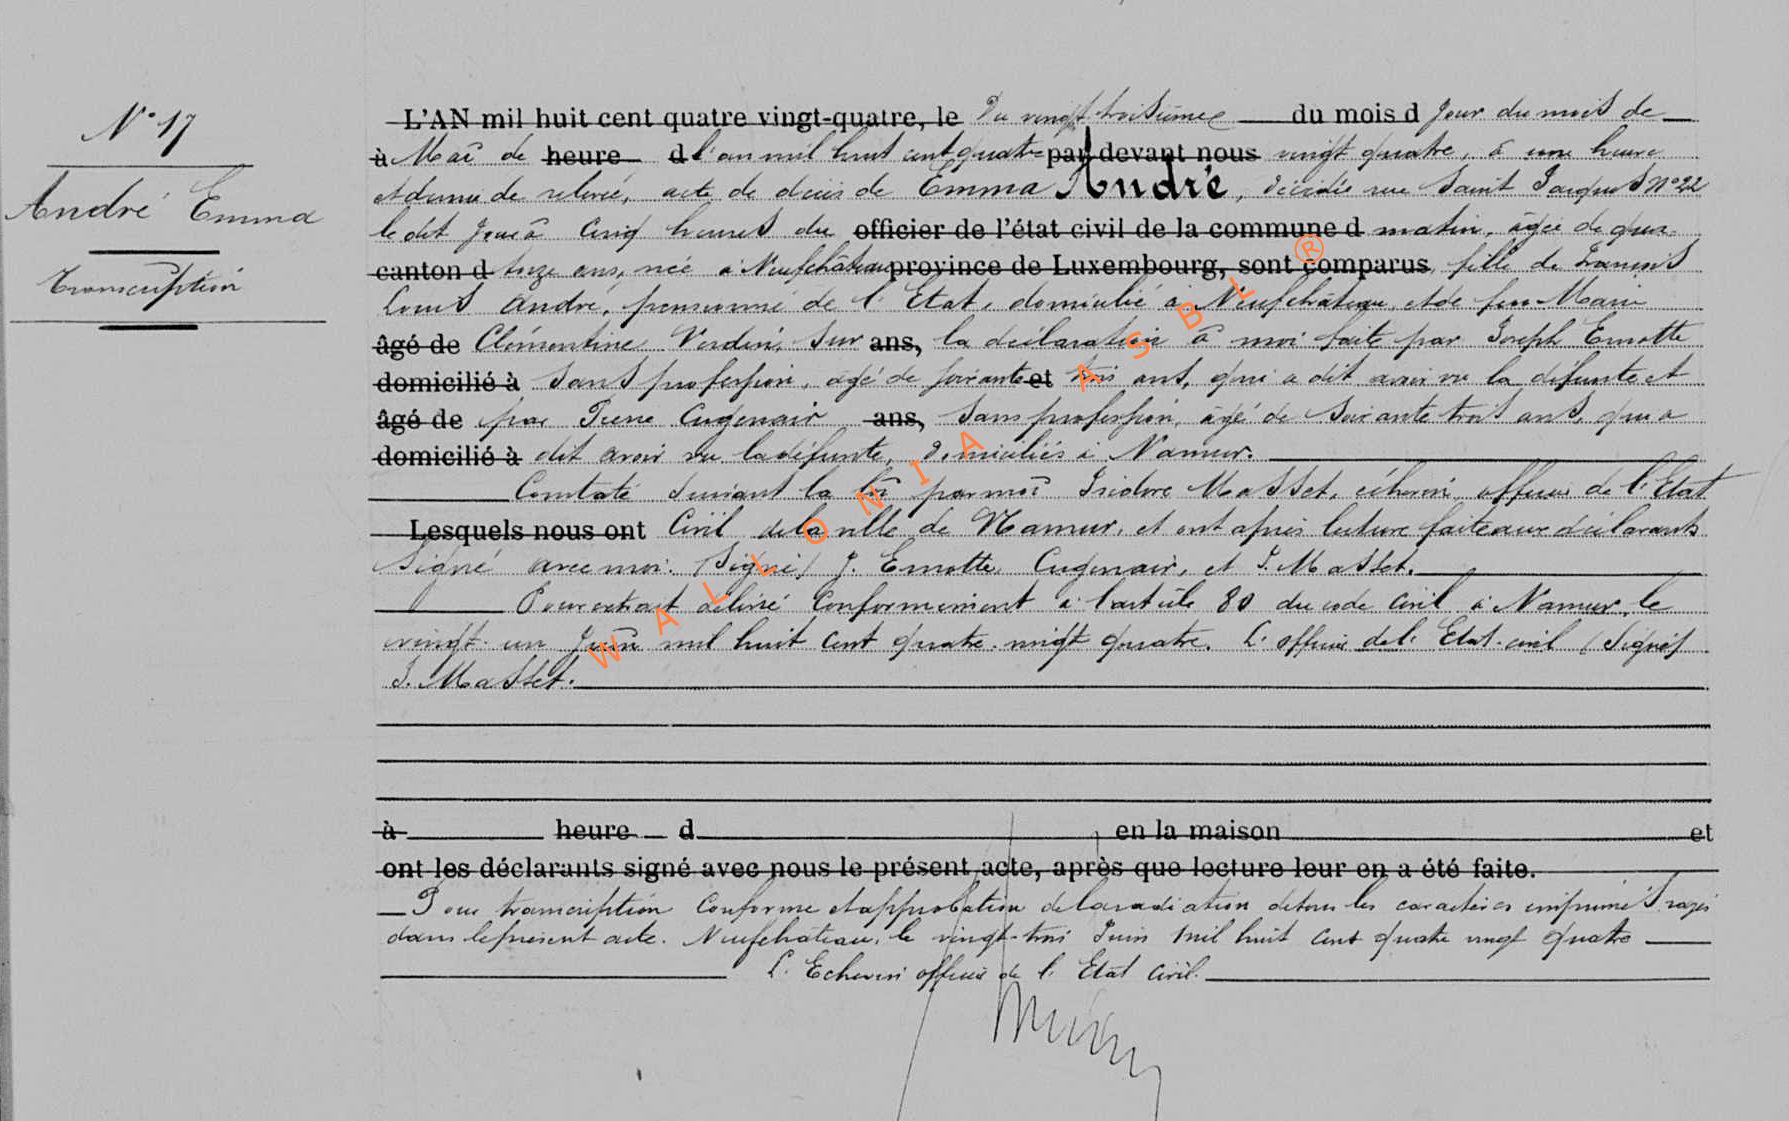 N° 17
André Emma
Transcription
L'AN mil huit cent quatre vingt-quatre, le Du vingt troisième du mois d Jour du mois de
à Mai de heure d l'an mil huit cent quatre par devant nous vingt quatre, à une heure
et demie de relevée, acte de décès de Emma André, décédée rue Saint Jacques N° 22
le dit jour à cinq heures du officier de l'état civil de la commune d matin, âgée de qua-
canton d torze ans, née à Neufchâteau province de Luxembourg, sont comparus, fille de François
Louis André, pensionné de l'Etat, domicilié à Neufchâteau, et de feu Marie
âgé de Clémentine Verdin, sur ans, la déclaration à moi faite par Joseph Emotte
domicilié à sans profession, âgé de soixante et trois ans, qui a dit avoir vu la défunte et
âgé de par Pierre Cugenair ans, sans profession, âgé de soixante trois ans, qui a
domicilié à dit avoir vu la défunte, domiciliés à Namur.
Constaté suivant la loi par moi Isidore Masset, échevin, officier de l'Etat
Lesquels nous ont Civil de la ville de Namur, et ont après lecture faite aux déclarants
signé avec moi. (Signé) J. Emotte, Cugenair, et I. Masset.
Pour extrait délivré conformément à l'article 80 du code civil à Namur, le
vingt-un Juin mil huit cent quatre-vingt quatre. L'officier de l'Etat-civil (Signé)
I. Masset.
à heure d en la maison et
ont les déclarants signé avec nous le présent acte, après que lecture leur en a été faite.
Pour transcription conforme et approbation de la radiation de tous les caractères imprimés rayés
dans le présent acte. Neufchâteau, le vingt-trois Juin mil huit cent quatre vingt quatre
L'Echevin officier de l'Etat Civil.
WALLONIA ASBL ®